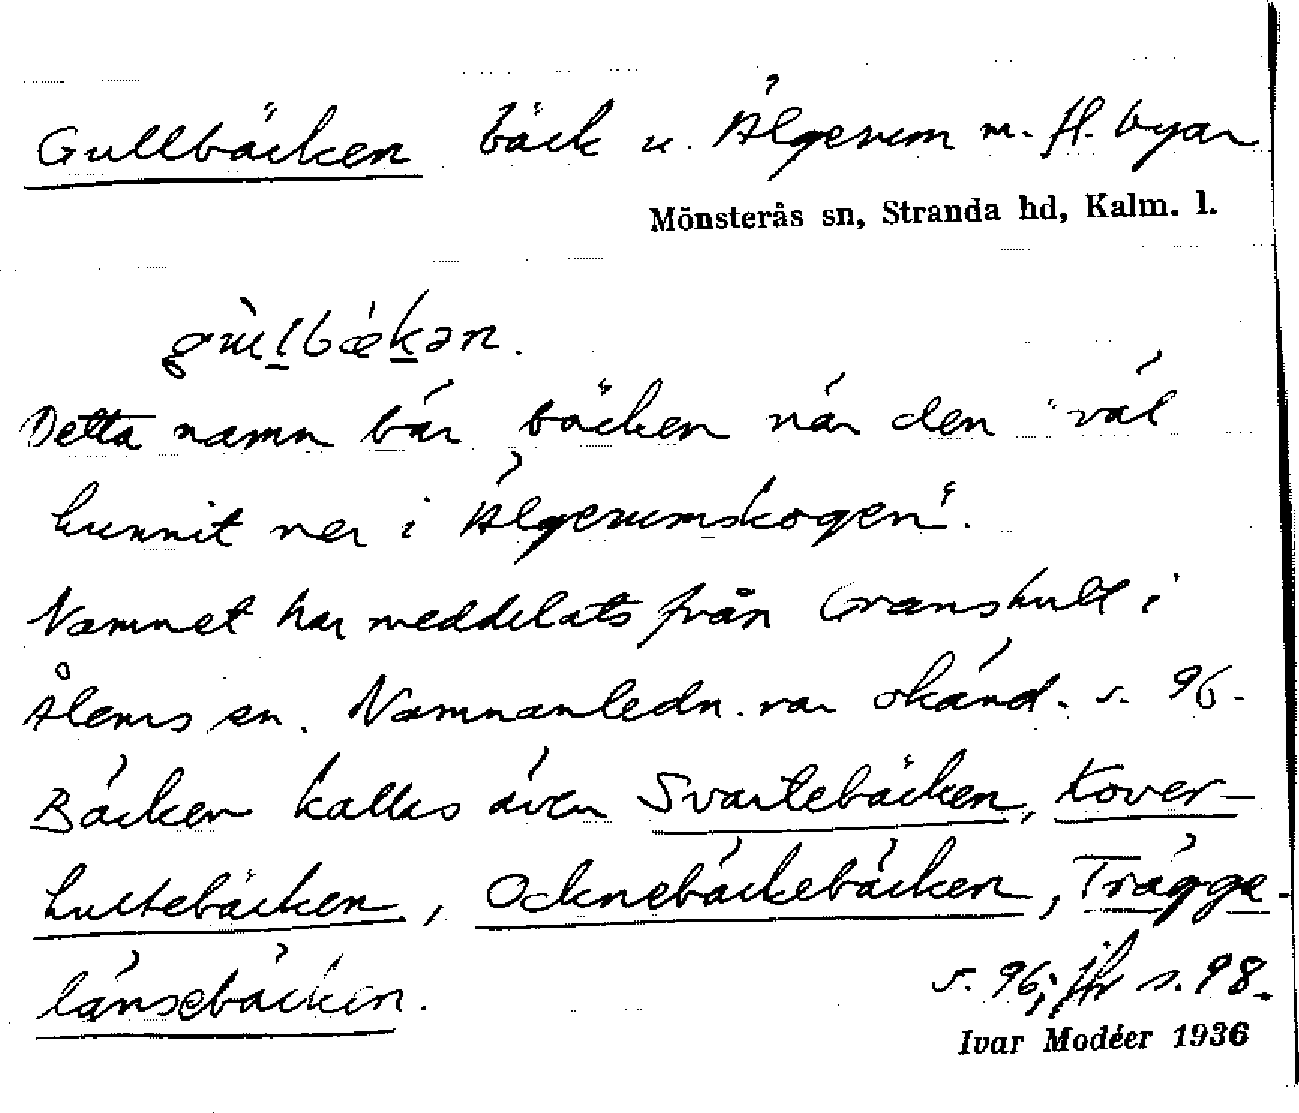 Gullbäcken bäck u. Älgerum m. fl. byar
Mönsterås sn, Stranda hd, Kalm. l.
gùlbǽkən.
Detta namn bär bäcken när den "väl
hunnit ner i Älgerumskogen".
Namnet har meddelats från Granshult i
Ålems sn. Namnanledn. var okänd. s. 96.
Bäcken kallas även Svartebäcken, Kover-
hultebäcken, Ocknebäckebäcken, Trägge-
länsebäcken.
s. 96; jfr s. 98.
Ivar Modéer 1936